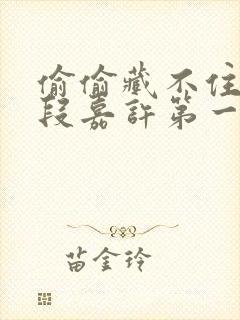 偷偷藏不住
段嘉許第一
苗金玲